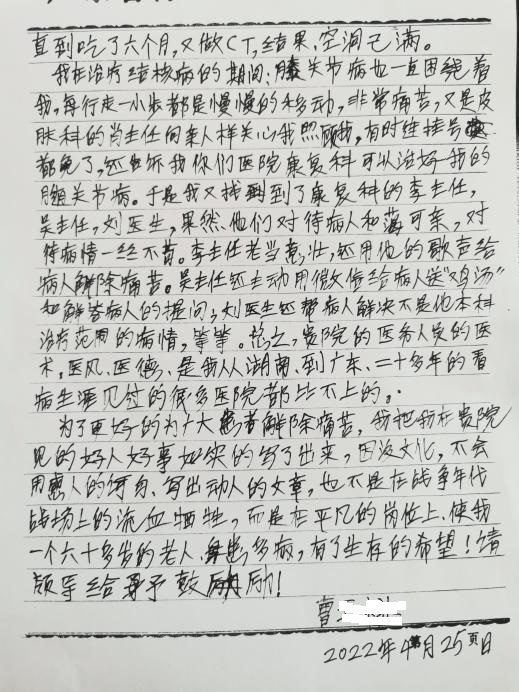 直到吃了六个月,又做CT,结果,空洞已满。
我在治疗结核病的期间,膝关节病也一直困绕着
我,每行走一小步都是慢慢的移动,非常痛苦,又是皮
肤科的肖主任同亲人样关心我照顾我,有时连挂号
都免了,还告诉我你们医院康复科可以治好我的
膝关节病。于是我又找到了康复科的李主任,
吴主任,刘医生,果然,他们对待病人和蔼可亲,对
待病情一丝不苟。李主任老当益壮,还用他的歌声给
病人解除痛苦。吴主任还主动用微信给病人送"鸡汤"
和解答病人的提问,刘医生还帮病人解决不是他本科
治疗范围的病情,等等。总之,贵院的医务人员的医
术,医风、医德、是我从湖南、到广东、二十多年的看
病生涯见过的很多医院都比不上的。
为了更好的为广大患者解除痛苦,我把我在贵院
见的好人好事如实的写了出来,因没文化,不会
用惠人的何身、写出动人的文章,也不是在战争年代
战场上的流血牺牲,而是在平凡的岗位上、使我
一个六十多岁的老人、身患多病,有了生存的希望!请
领导给予鼓励!
曹
2022年4月25日